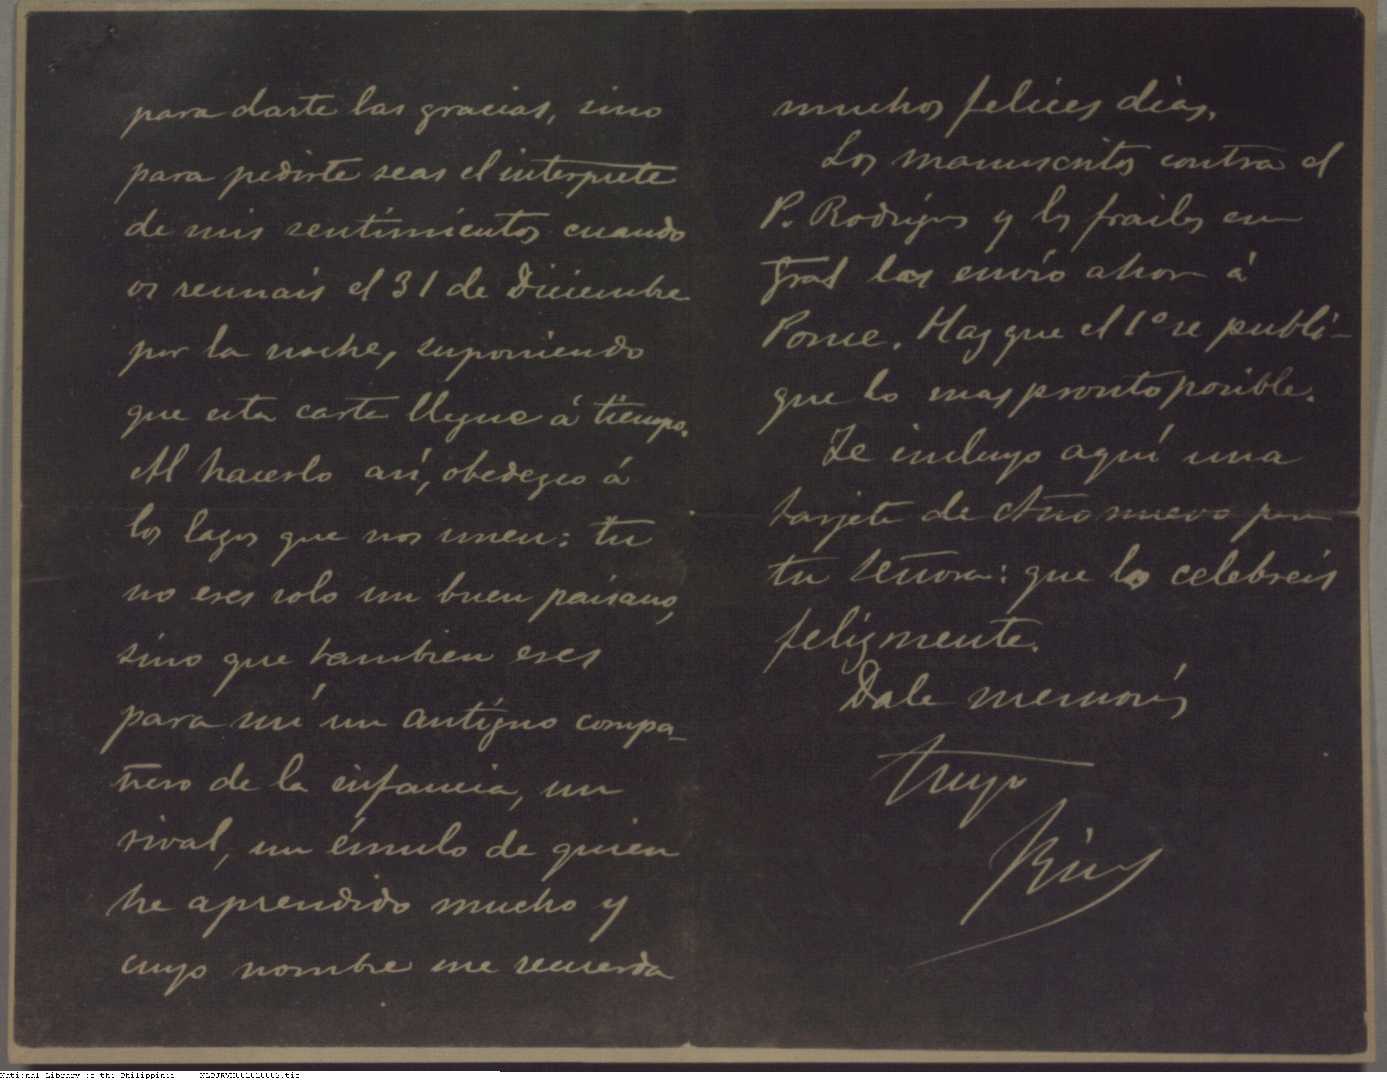 para darte las gracias, sino
para pedirte seas el interprete
de mis sentimientos cuando
os reunais el 31 de Diciembre
por la noche, suponiendo
que esta carta llegue á tiempo.
Al hacerlo así, obedezco á
los lazos que nos unen: tu
no eres solo un buen paisano,
sino que tambien eres
para mí un antiguo compa-
ñero de la infancia, un
rival, un émulo de quien
he aprendido mucho y
cuyo nombre me recuerda
muchos felices dias.
Los manuscritos contra el
P. Rodriguez y los frailes en
gral los envío ahora á
Ponce. Haz que el 1º se publi-
que lo mas pronto posible.
Te incluyo aquí una
tarjeta de Año nuevo para
tu señora: que lo celebreis
felizmente.
Dale memorias
Tuyo
Rizal
National Library of the Philippines